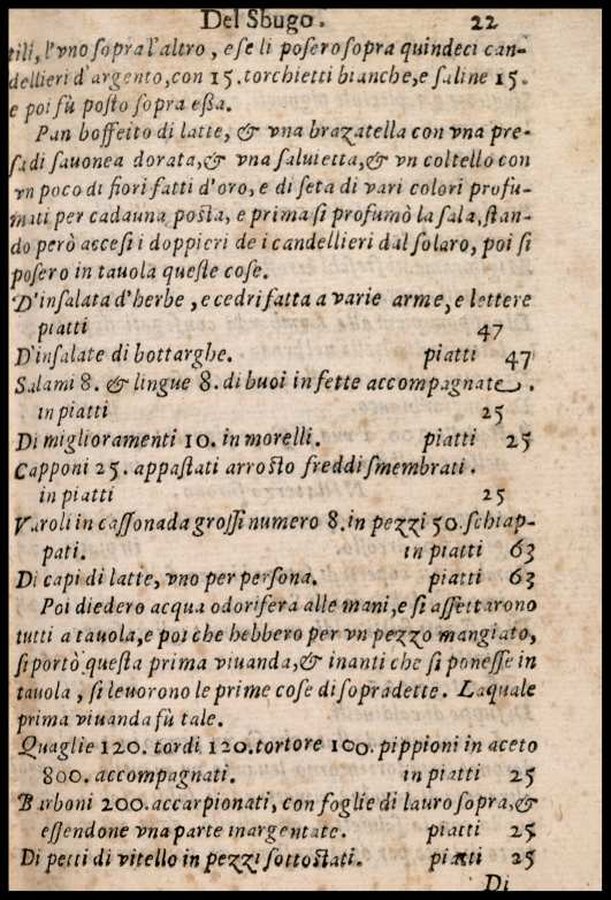 Del Sbugo. 22
tili, l'vno sopra l'altro, e se li posero sopra quindeci can-
dellieri d'argento, con 15. torchietti bianche, e saline 15.
e poi fù posto sopra eßa.
Pan boffeito di latte, & vna brazatella con vna pre-
sa di sauonea dorata, & vna saluietta, & vn coltello con
vn poco di fiori fatti d'oro, e di seta di vari colori profu-
mati per cadauna posta, e prima si profumò la sala, stan-
do però accesi i doppieri de i candellieri dal solaro, poi si
posero in tauola queste cose.
D'insalata d'herbe, e cedri fatta a varie arme, e lettere
piatti 47
D'insalate di bottarghe. piatti 47
Salami 8. & lingue 8. di buoi in fette accompagnate.
in piatti 25
Di miglioramenti 10. in morelli. piatti 25
Capponi 25. appastati arrosto freddi smembrati.
in piatti 25
Varoli in cassonada grossi numero 8. in pezzi 50. schiap-
pati. in piatti 63
Di capi di latte, vno per persona. piatti 63
Poi diedero acqua odorifera alle mani, e si assettarono
tutti a tauola, e poi che hebbero per vn pezzo mangiato,
si portò questa prima viuanda, & inanti che si ponesse in
tauola, si leuorono le prime cose di sopradette. Laquale
prima viuanda fù tale.
Quaglie 120. tordi 120. tortore 100. pippioni in aceto
800. accompagnati. in piatti 25
Barboni 200. accarpionati, con foglie di lauro sopra, &
essendone vna parte inargentate. piatti 25
Di petti di vitello in pezzi sottostati. piatti 25
Di